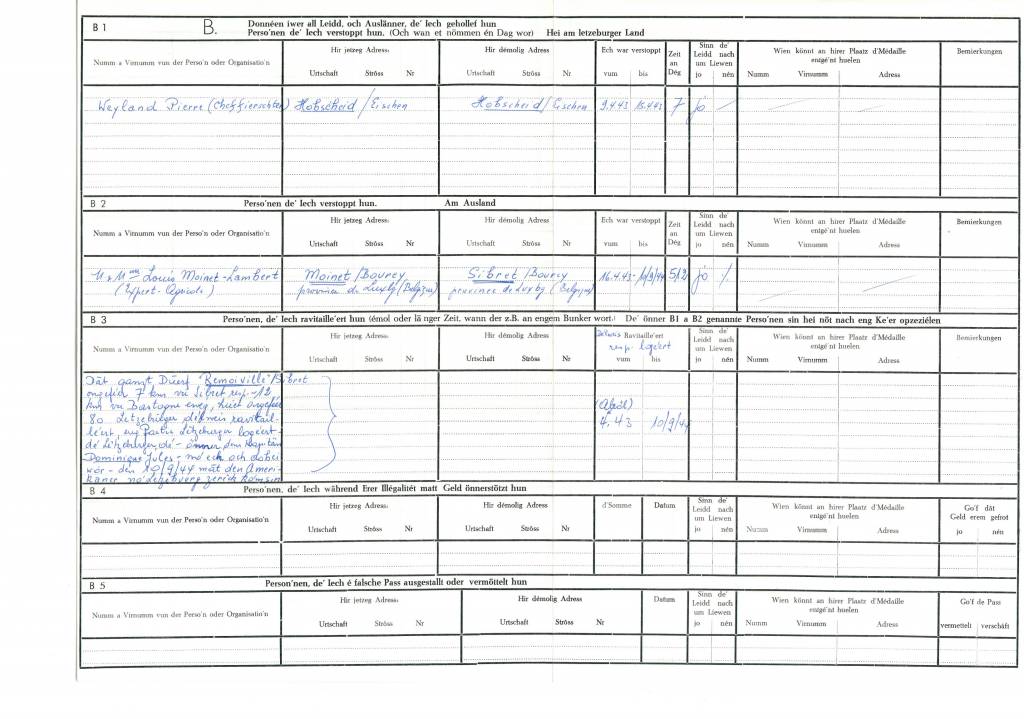 B 1
B.
Donnéen iwer all Leidd, och Auslänner, de' Iech gehollef hun
Perso'nen de' Iech verstoppt hun. (Och wan et nömmen én Dag wor) Hei am letzeburger Land
Numm a Virnumm vun der Perso'n oder Organisatio'n
Hir jetzeg Adress:
Urtschaft Ströss Nr
Hir démolig Adress:
Urtschaft Ströss Nr
Ech war verstoppt
vum bis
Zeit
an
Dég
Sinn de'
Leidd nach
um Liewen
jo nén
Wien könnt an hirer Plaatz d'Médaille
entgé'nt huelen
Numm Virnumm Adress
Bemierkungen
Weyland Pierre Hobscheid / Eischen Hobscheid / Eischen 9.4.43 15.4.43 7 jo
B 2
Perso'nen de' Iech verstoppt hun. Am Ausland
Numm a Virnumm vun der Perso'n oder Organisatio'n
Hir jetzeg Adress:
Urtschaft Ströss Nr
Hir démolig Adress:
Urtschaft Ströss Nr
Ech war verstoppt
vum bis
Zeit
an
Dég
Sinn de'
Leidd nach
um Liewen
jo nén
Wien könnt an hirer Plaatz d'Médaille
entgé'nt huelen
Numm Virnumm Adress
Bemierkungen
Louis Moinet-Lambert Moinet / Bourcy Sibret / Bourcy 16.4.43 10/9/44 512 jo
(Expert-Agricole) province de Luxbg (Belgique) province de Luxbg (Belgique)
B 3
Perso'nen, de' Iech ravitaille'ert hun (émol oder länger Zeit, wann der z.B. an engem Bunker wort.) De' önner B1 a B2 genannte Perso'nen sin hei nöt nach eng Ke'er opzeziélen
Numm a Virnumm vun der Perso'n oder Organisatio'n
Hir jetzeg Adress:
Urtschaft Ströss Nr
Hir démolig Adress:
Urtschaft Ströss Nr
Ravitaille'ert
resp. logéiert
vum bis
Sinn de'
Leidd nach
um Liewen
jo nén
Wien könnt an hirer Plaatz d'Médaille
entgé'nt huelen
Numm Virnumm Adress
Bemierkungen
Dât ganzt Duerf "Remoiville" / Sibret
ongefier 7 km vu Sibret resp. 12
km vu Bastogne eweg, huet ongefier
80 Letzebuerger ravitail-
le'ert
Letzeburger de' önner dem Kapitän
Dominique Jules - wo' ech och dobei
wor - den 10/9/44 mat den Ameri-
kaner no Letzeburg
(Abröl)
4.43 10/9/44
B 4
Perso'nen, de' Iech während Erer Illegalitét matt Geld önnerstötzt hun
Numm a Virnumm vun der Perso'n oder Organisatio'n
Hir jetzeg Adress:
Urtschaft Ströss Nr
Hir démolig Adress
Urtschaft Ströss Nr
d'Somme
Datum
Sinn de'
Leidd nach
um Liewen
jo nén
Wien könnt an hirer Plaatz d'Médaille
entgé'nt huelen
Numm Virnumm Adress
Go'f dât
Geld erem gefrot
jo nén
B 5
Person'nen, de' Iech é falsche Pass ausgestallt oder vermöttelt hun
Numm a Virnumm vun der Perso'n oder Organisatio'n
Hir jetzeg Adress:
Urtschaft Ströss Nr
Hir démolig Adress
Urtschaft Ströss Nr
Datum
Sinn de'
Leidd nach
um Liewen
jo nén
Wien könnt an hirer Plaatz d'Médaille
entgé'nt huelen
Numm Virnumm Adress
Go'f de Pass
vermettelt verschâft